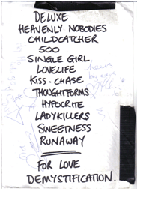 DELUXE
HEAVENLY NOBODIES
CHILDCATCHER
500
SINGLE GIRL
LOVELIFE
KISS-CHASE
THOUGHTFORMS
HYPOCRITE
LADYKILLERS
SWEETNESS
RUNAWAY
FOR LOVE
DEMYSTIFICATION